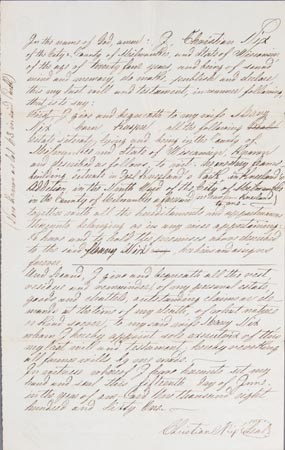 In the name of God, amen: I, Christian Nix
of the City & County of Milwaukee, and State of Wisconsin
of the age of twenty four years, and being of sound
mind and memory, do make, publish and declare
this my last will and testament, in manner following
that is to say:
First, I give and bequeath to my wife Mary
Nix born all the following
Estate situate, lying and being in the County
of Milwaukee and State of Wisconsin, known
and described as follows, to wit:
in
Addition, in the Ninth Ward of the City of Milwaukee
in the County of Milwaukee aforesaid
together with all the hereditaments and appurtenances
thereunto belonging or in any wise appertaining:
To have and to hold the premises above described
to the said Mary Nix her heirs and assigns
forever.
And Second, I give and bequeath all the rest
residue and remainder, of my personal estate
goods and chattels, outstanding claims or de-
mands at the time of my death, of what nature
or kind soever, to my said wife Mary Nix
whom I hereby appoint sole executrix of this
my last will and testament; hereby revoking
all former wills by me made.
In witness whereof I have hereunto set my
hand and seal this day of June,
in the year of our Lord One thousand eight
hundred and Sixty
Christian Nix